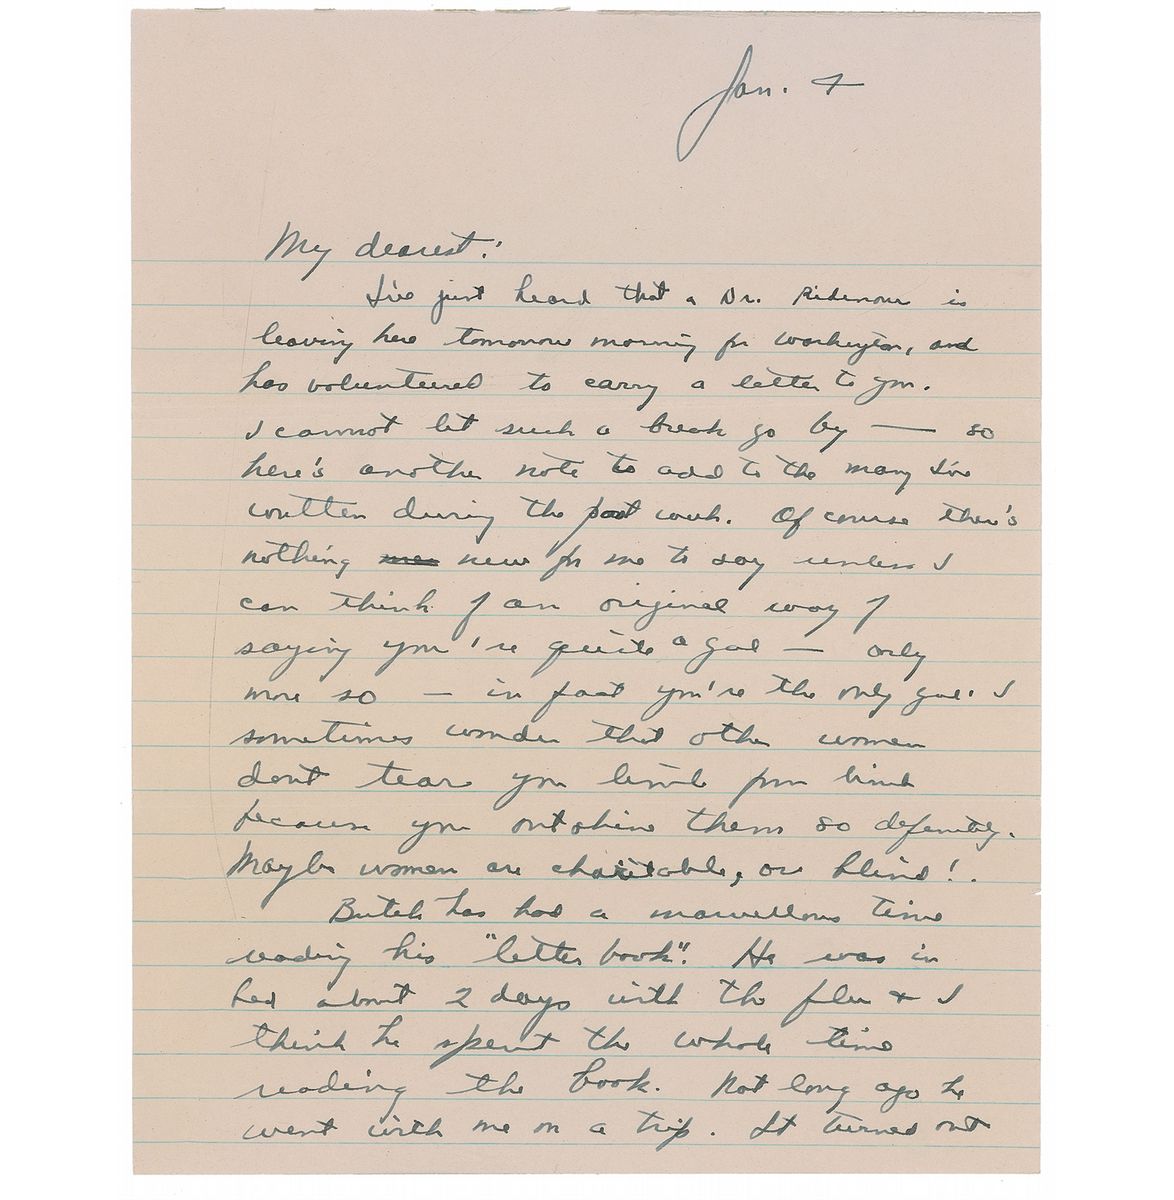 Jan. 4
My dearest:
I've just heard that a Dr. Ridenour is
leaving here tomorrow morning for Washington, and
has volunteered to carry a letter to you.
I cannot let such a break go by — so
here's another note to add to the many I've
written during the past week. Of course there's
nothing new for me to say unless I
can think of an original way of
saying you're quite a gal — only
more so — in fact you're the only gal! I
sometimes wonder that other women
don't tear you limb from limb
because you outshine them so definitely.
Maybe women are charitable, or blind!.
Butch has had a marvellous time
reading his "letter book". He was in
bed about 2 days with the flu + I
think he spent the whole time
reading the book. Not long ago he
went with me on a trip. It turned out